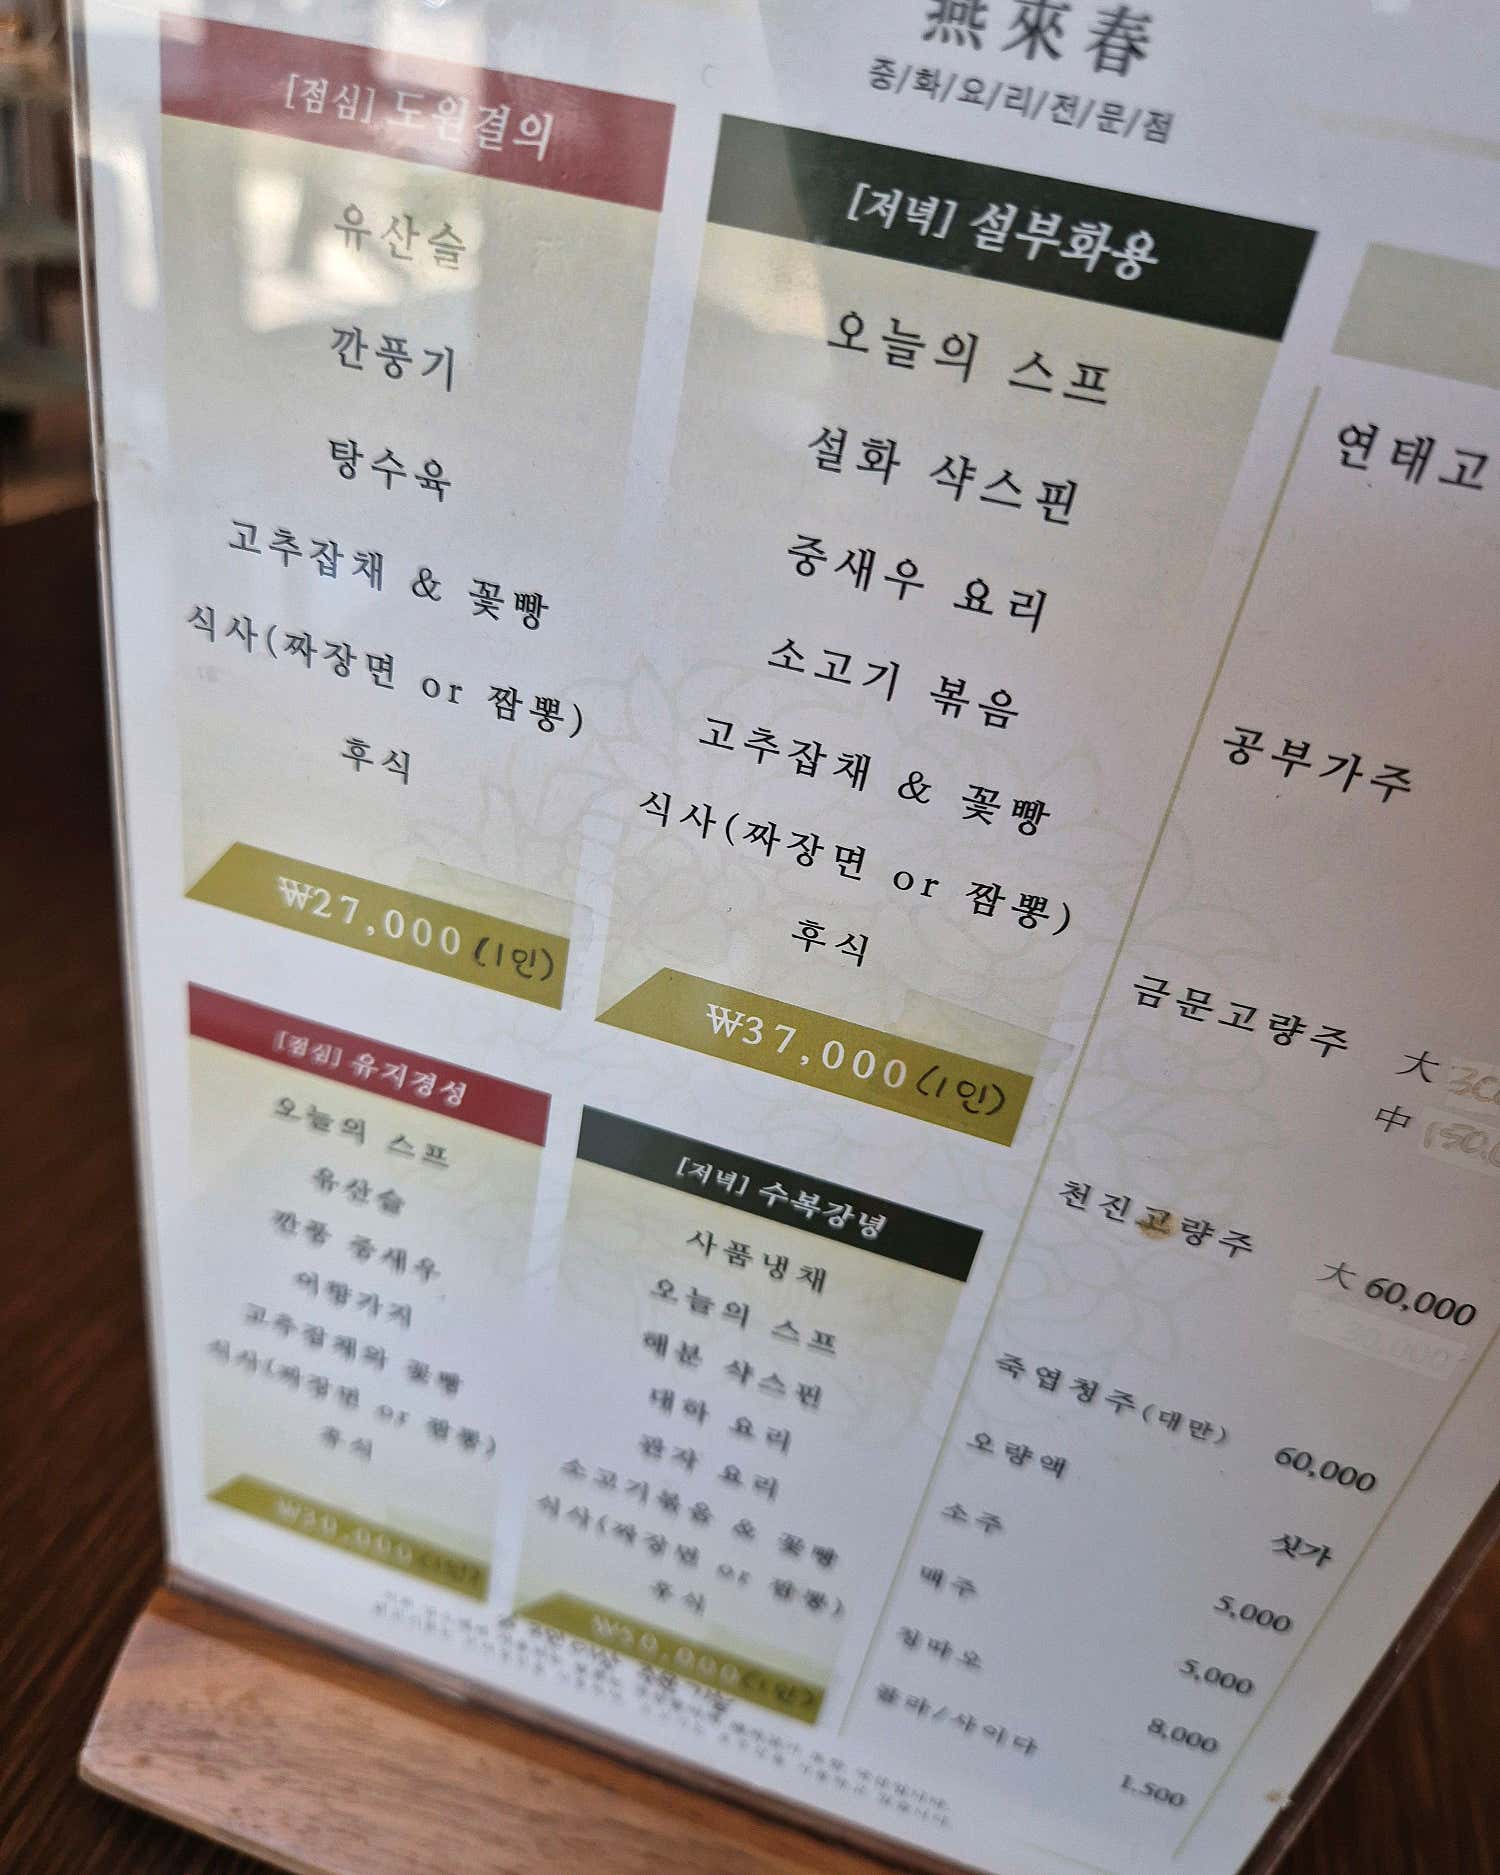 燕來春
중/화/요/리/전/문/점
[점심] 도원결의
유산슬
깐풍기
탕수육
고추잡채 & 꽃빵
식사(짜장면 or 짬뽕)
후식
₩27,000(1인)
[저녁] 설부화용
오늘의 스프
설화 샥스핀
중새우 요리
소고기 볶음
고추잡채 & 꽃빵
식사(짜장면 or 짬뽕)
후식
₩37,000(1인)
[점심] 유지경성
오늘의 스프
유산슬
깐풍 중새우
어향가지
고추잡채와 꽃빵
식사(짜장면 or 짬뽕)
후식
₩30,000(1인)
[저녁] 수복강녕
사품냉채
오늘의 스프
해분 샥스핀
대하 요리
관자 요리
소고기볶음 & 꽃빵
식사(짜장면 or 짬뽕)
후식
₩50,000(1인)
연태고
공부가주
금문고량주 大
中 150,0
천진고량주 大 60,000
죽엽청주(대만) 60,000
오량액 싯가
소주 5,000
맥주 5,000
칭따오 8,000
콜라/사이다 1,500